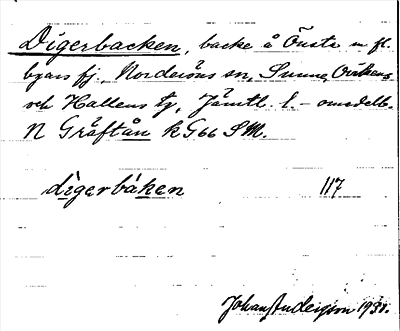 Digerbacken, backe å Önsta m fl.
byars fj., Norderöns sn, Sunne, Ovikens
och Hallens tg, Jämtl. l. – omedelb.
N Gräftån kG66 SM.
digerbåken 117
Johan Anderson 193